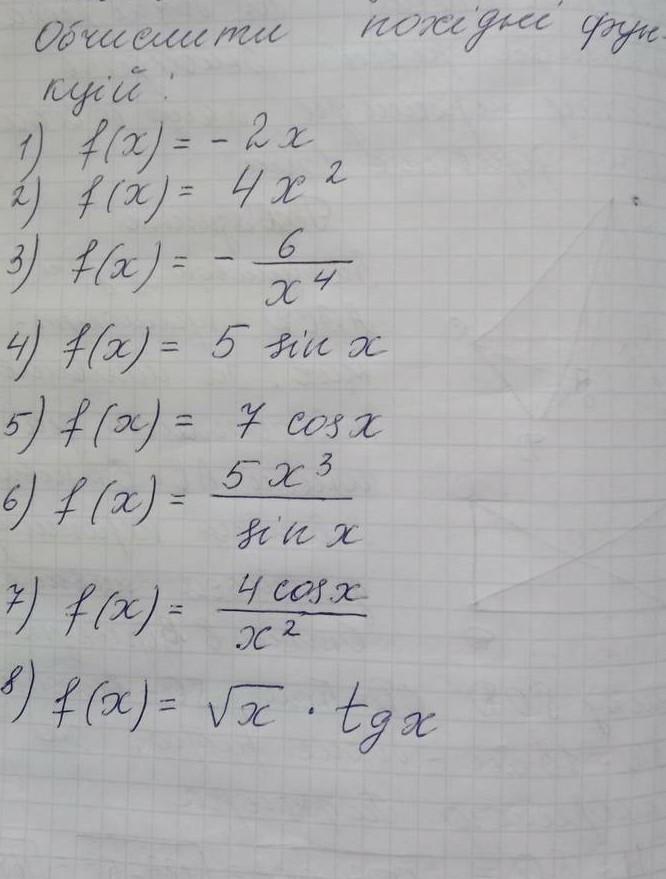 Обчислити похідні фун-
кцій:
1) f(x) = - 2x
2) f(x) = 4x²
3) f(x) = - 6/x⁴
4) f(x) = 5 sin x
5) f(x) = 7 cosx
6) f(x) = 5x³/sin x
7) f(x) = 4 cosx/x²
8) f(x) = √x · tgx